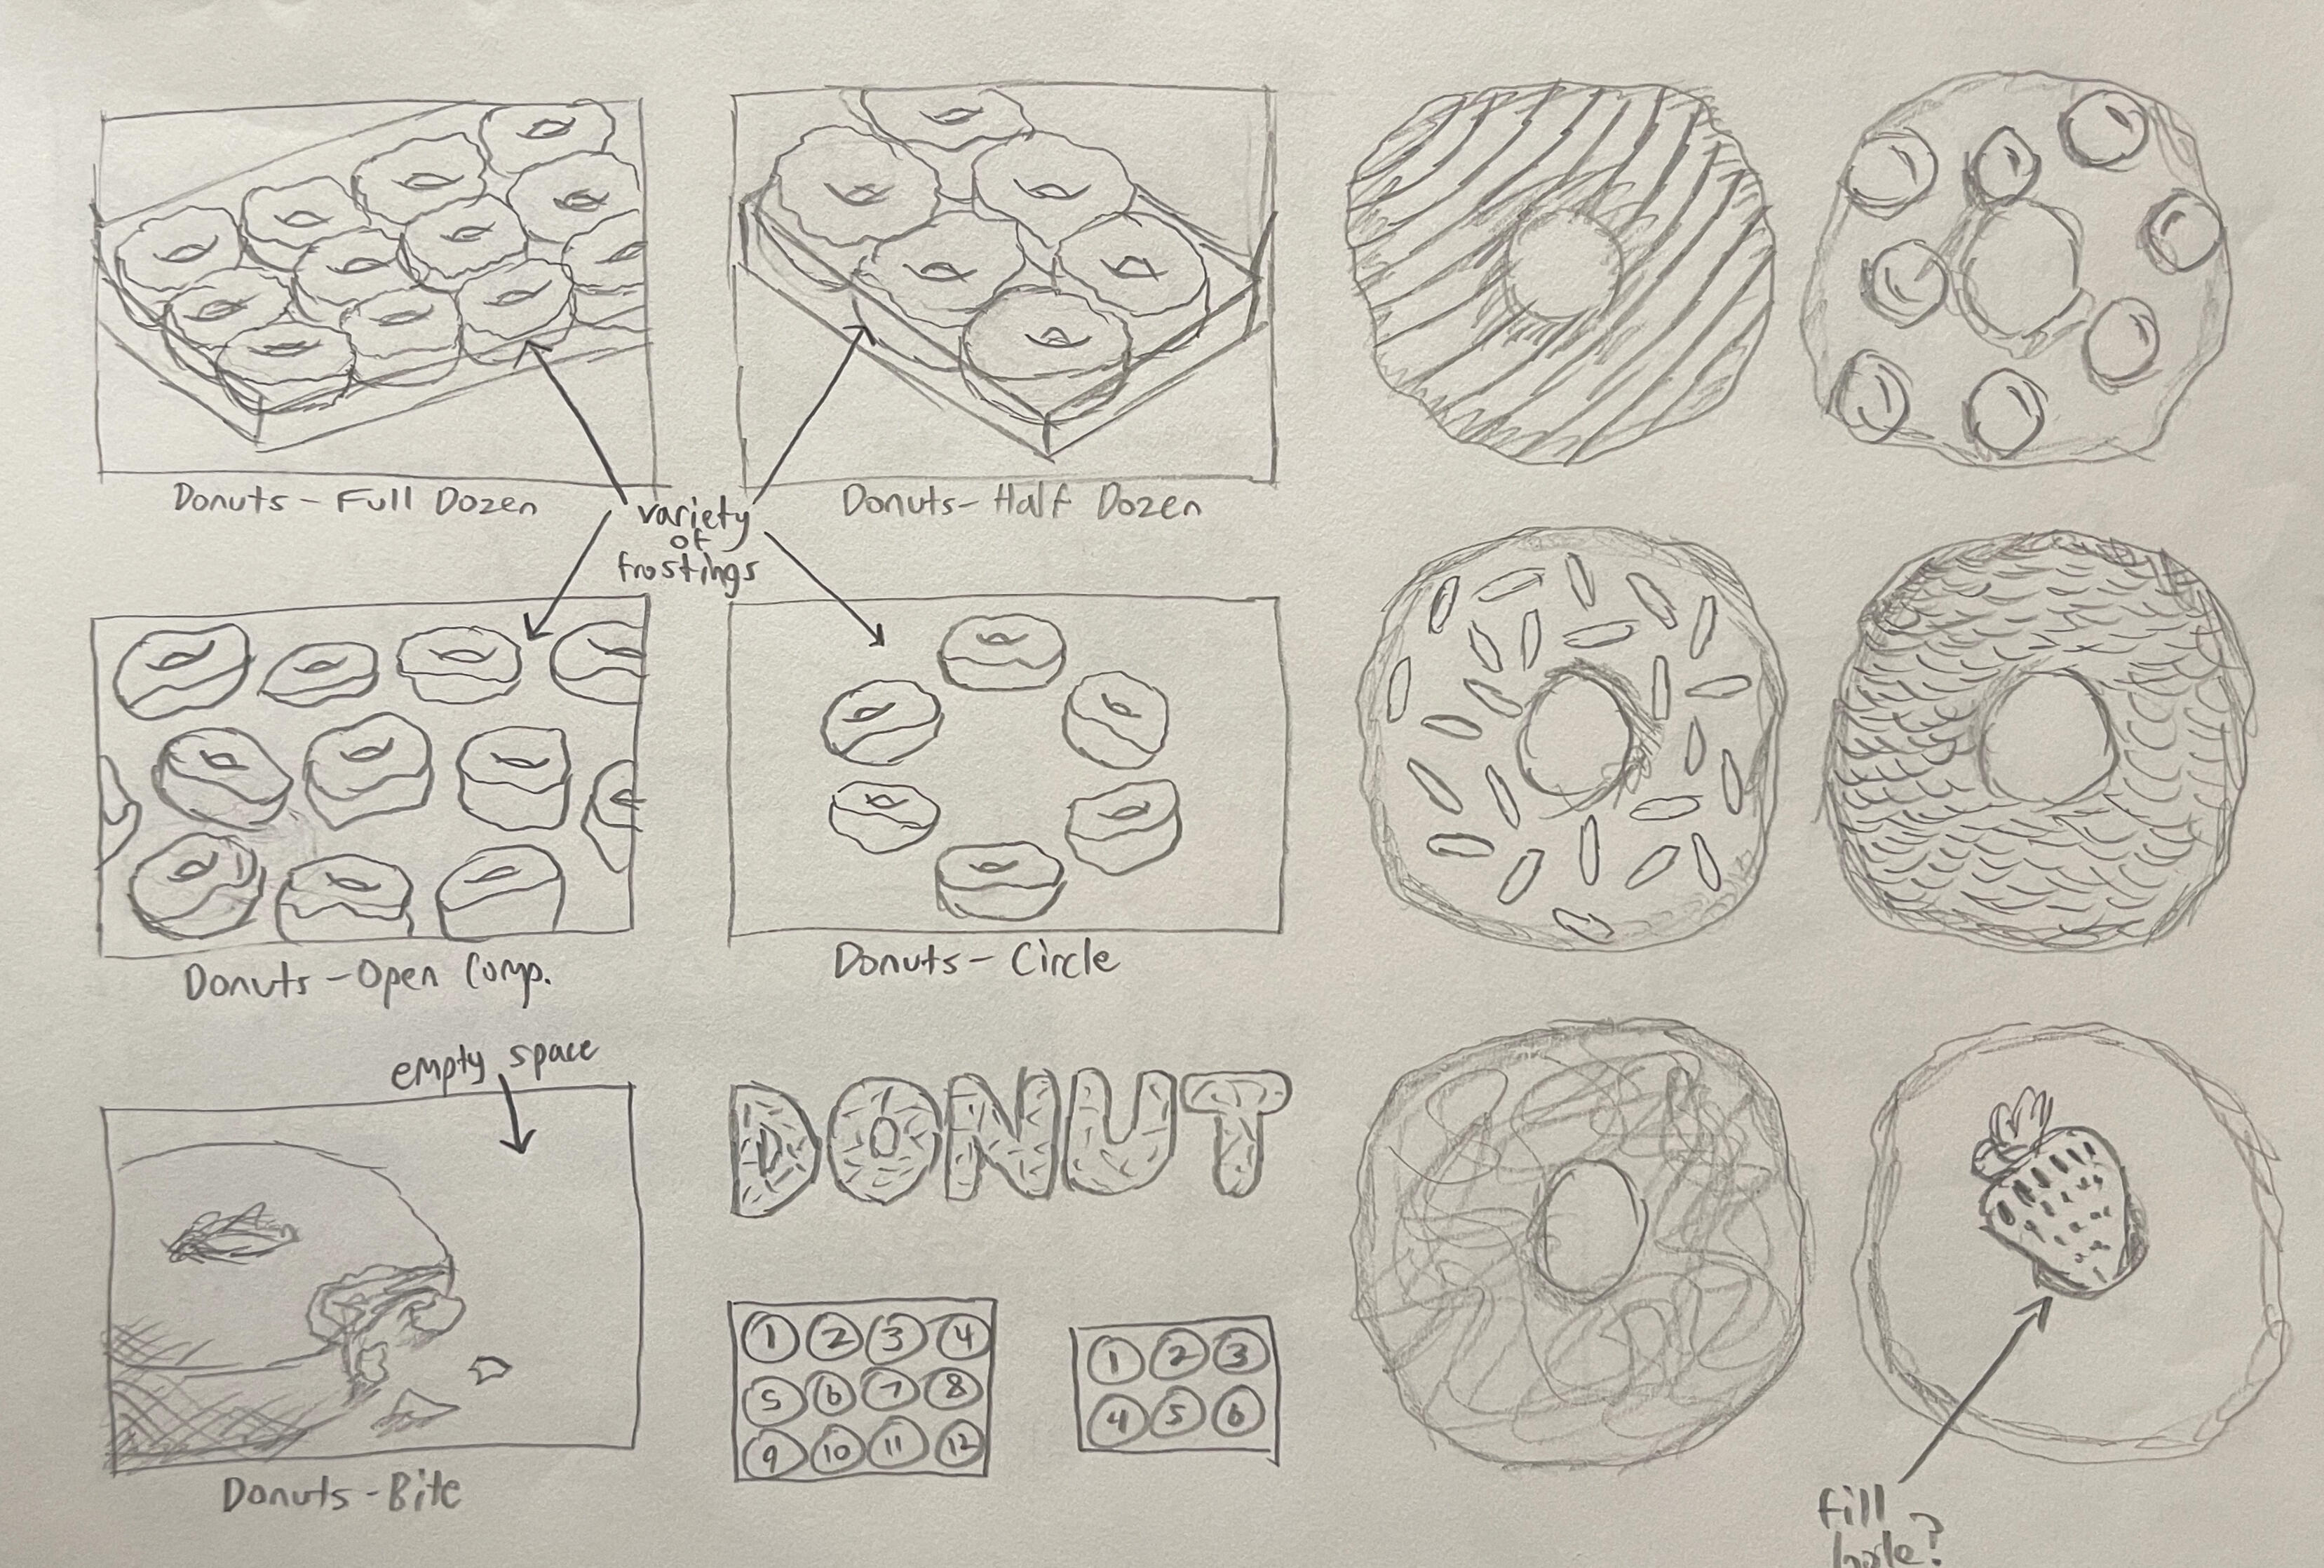 Donuts - Full Dozen
Donuts - Half Dozen
variety
of
frostings
Donuts - Open Comp.
Donuts - Circle
empty space
Donuts - Bite
DONUT
1 2 3 4
5 6 7 8
9 10 11 12
1 2 3
4 5 6
fill
hole?